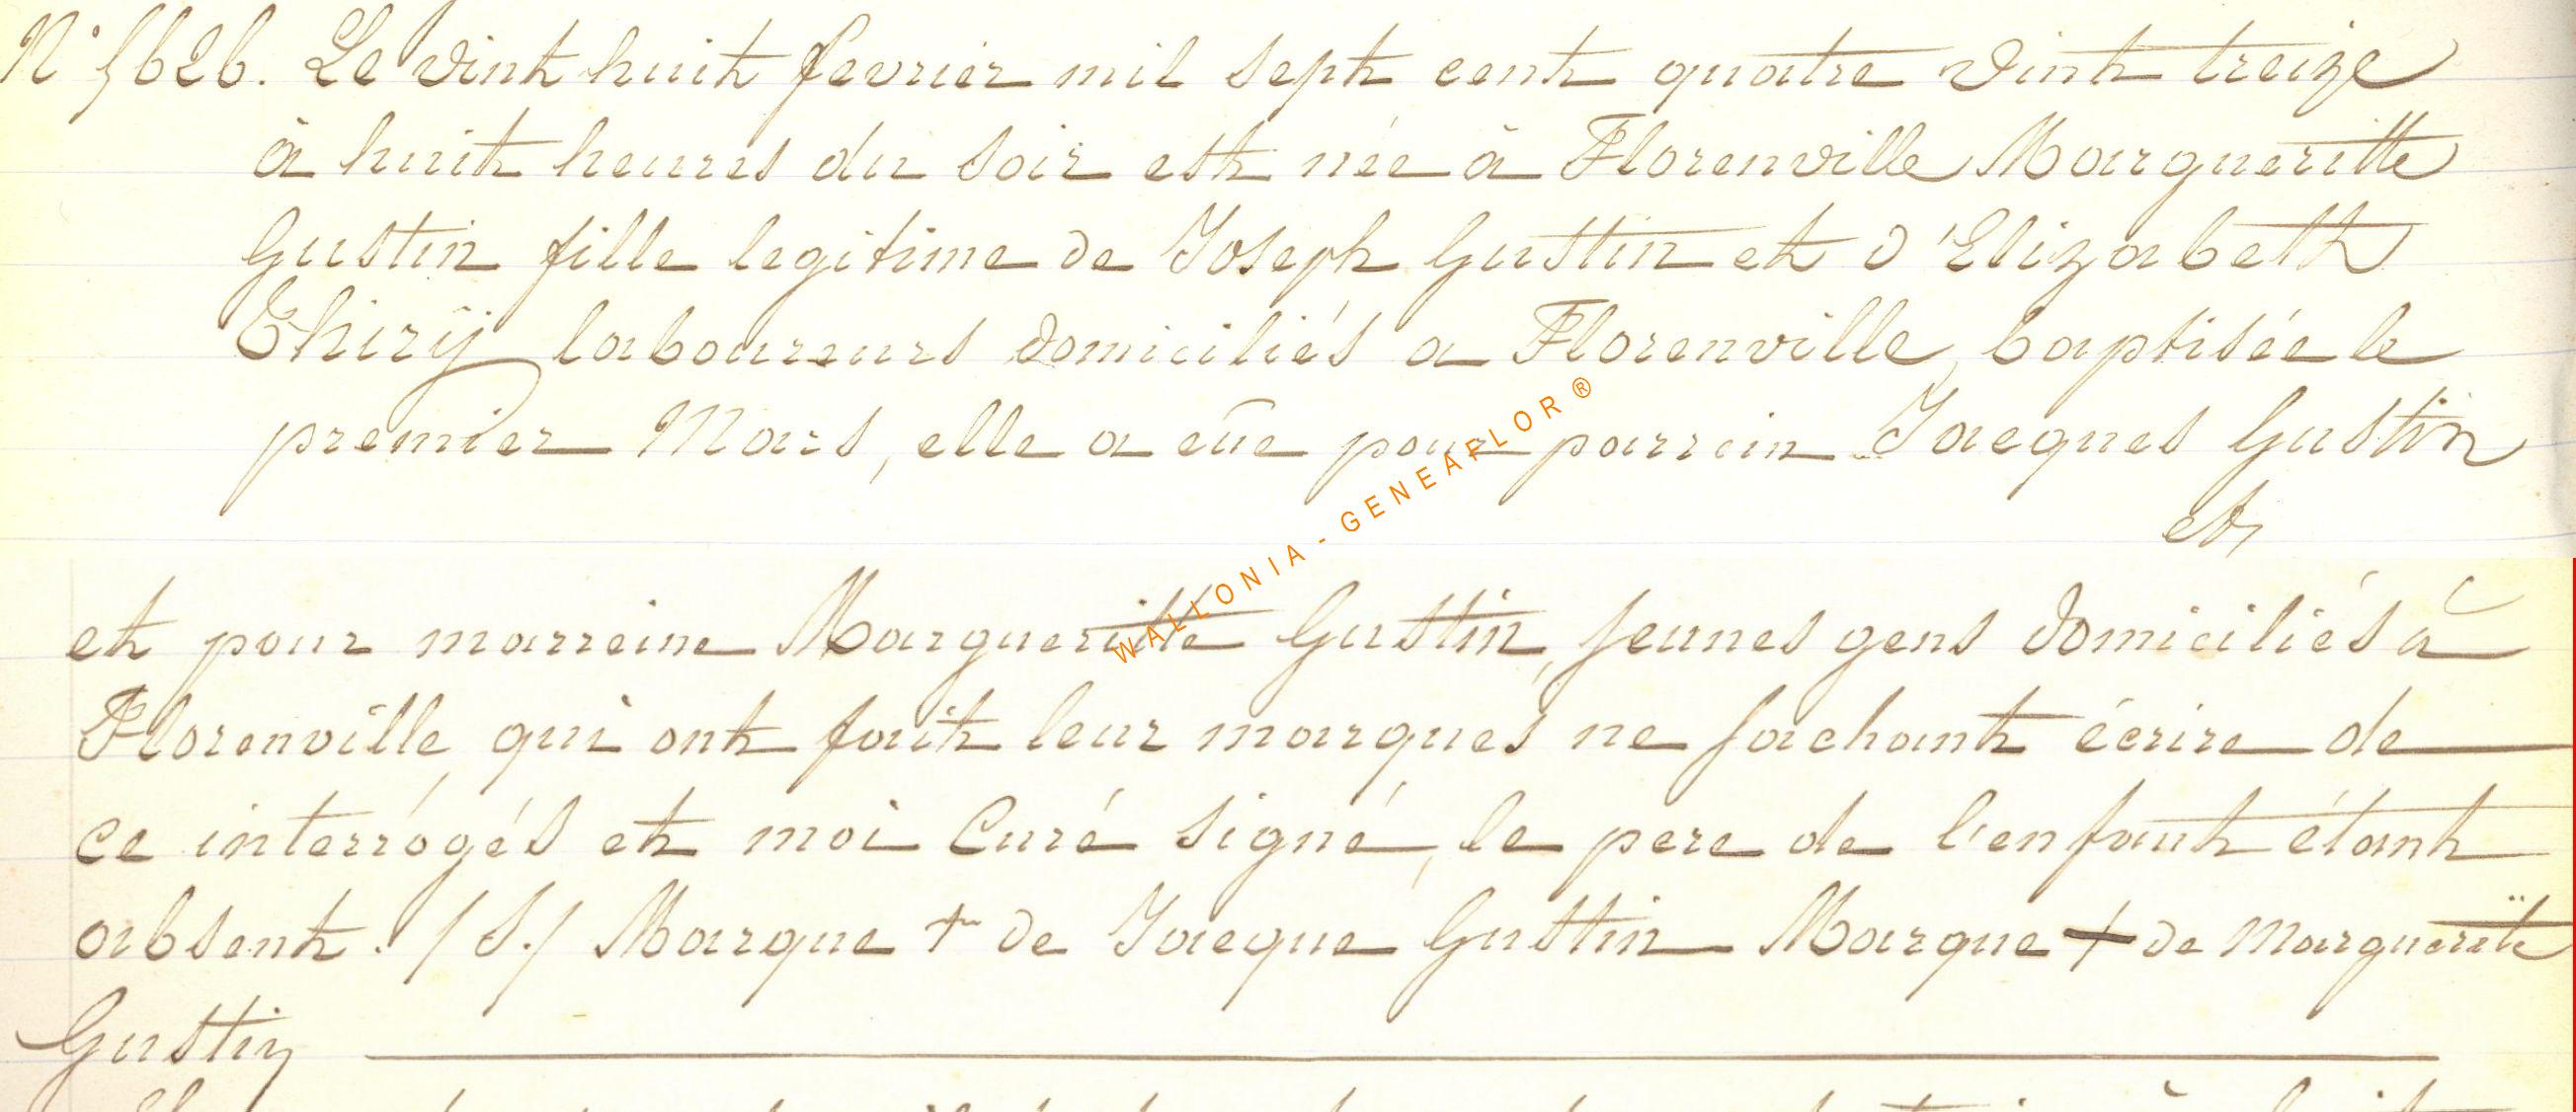 N° 5626. Le vint huit fevrier mil sept cent quatre vint treize
à huit heures du soir est née à Florenville Margueritte
Gustin fille legitime de Joseph Gustin et d'Elizabeth
Thirÿ laboureurs domiciliés a Florenville, baptisée le
premier Mars, elle a eüe pour parrein Jacques Gustin
et
et pour marreine Margueritte Gustin, jeunes gens domiciliés à
Florenville, qui ont fait leur marques ne sachant écrire de
ce interrogés et moi Curé signé, le pere de l'enfant étant
absent. /S./ Marque + de Jacque Gustin Marque + de Margueritte
Gustin
WALLONIA - GENEAFLOR ®